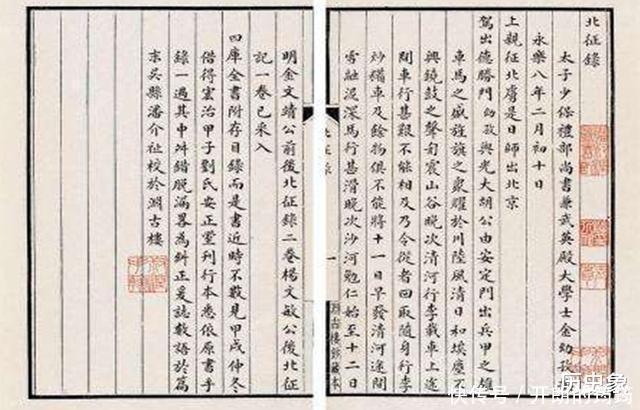 北征錄
太子少保禮部尚書兼武英殿大學士金幼孜
永樂八年二月初十日
上親征北虜是日師出北京
駕出德勝門幼孜與光大胡公由安定門出兵甲之雄
車馬之盛旌旗之衆耀於川陸風清日和埃塵不
興鐃鼓之聲訇震山谷晚次清河行李載車上途
間車行甚艱不能相及乃令從者回取隨身行李
炒糒車及餘物俱不能將十一日早發清河途間
雪融泥深馬行甚滑晚次沙河勉仁始至十二日
北征錄
一
淵古樓鈔藏本
明金文靖公前後北征錄二卷楊文敏公後北征
記一卷已采入
四庫全書附存目錄而是書近時不數見甲戌仲冬
借得宏治甲子劉氏安正堂刊行本悉依原書手
錄一過其中舛錯脫漏畧為糾正爰誌數語於篇
末吳縣潘介祉校於淵古樓
快传号 / 开朗的